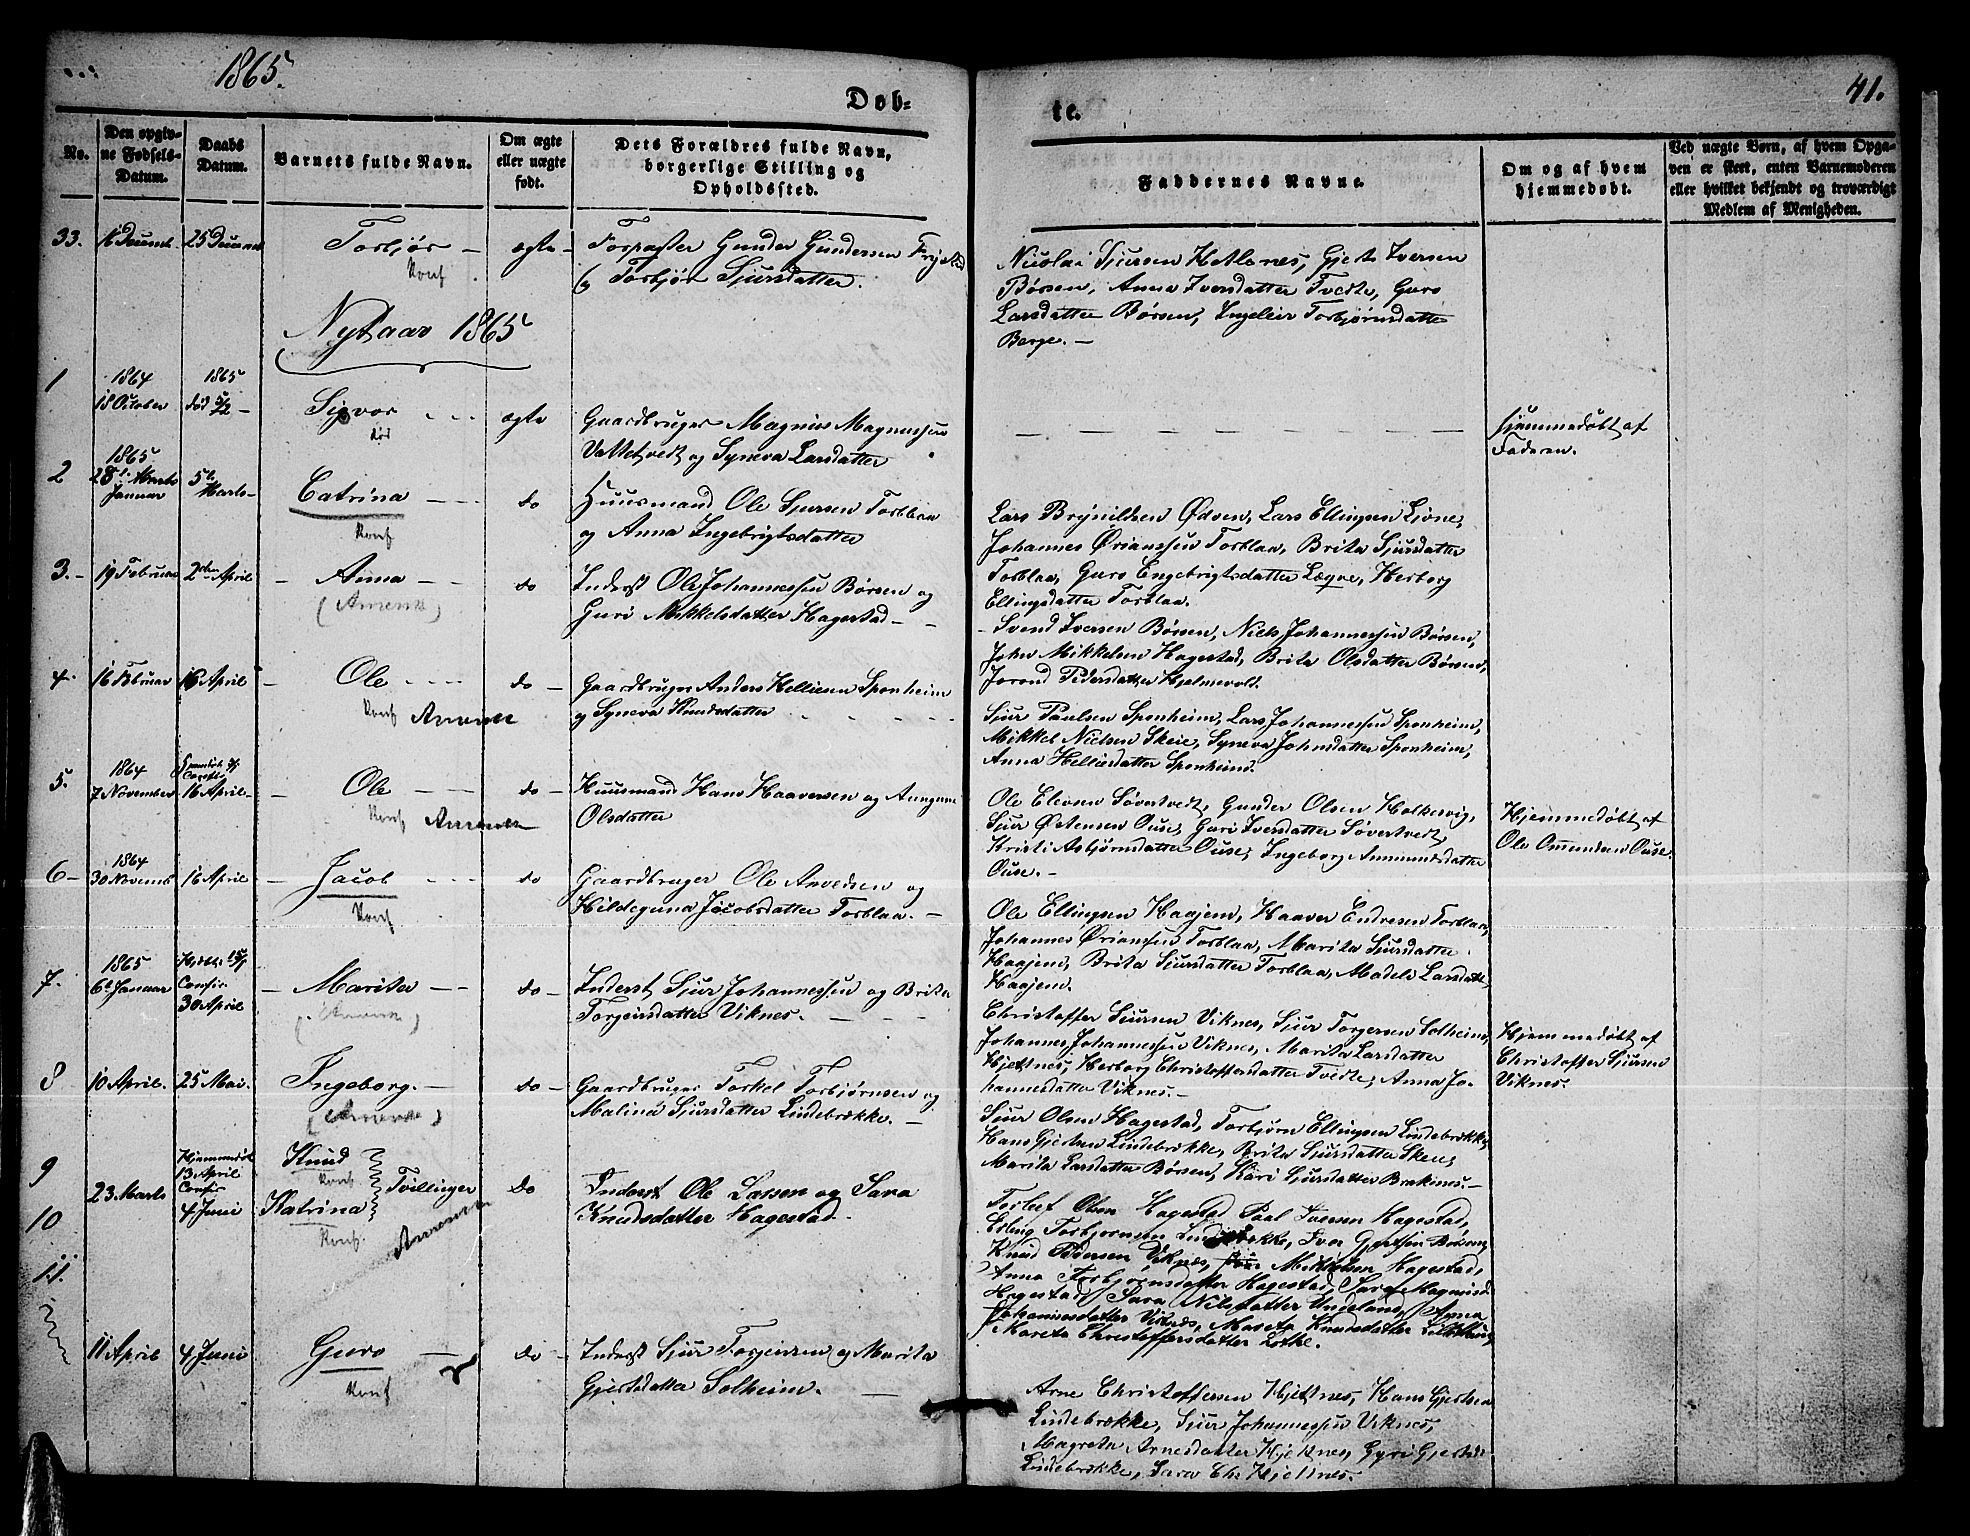 1865.
Døb-
te.
41.
No.
Den opgiv-
ne Fødsels-
Datum.
Daabs
Datum.
Barnets fulde Navn.
Om ægte
eller uægte
født.
Dets Forældres fulde Navn,
borgerlige Stilling og
Opholdssted.
Faddernes Navne.
Om og af hvem
hjemmedøbt.
Ved uægte Børn, af hvem Opga-
ven er skeet, enten Barnemoderen
eller hvilket bekjendt og troværdigt
Medlem af Menigheden.
33.
25
Torbjør
Konf
ægte
Gunder Gundersen
og Torbjør Sjursdatter.
Nicolai Sjursen Hetlenes, Gjert Iversen
Børsen, Anna Iversdatter Tvedte, Guro
Larsdatter Børsen, Ingeleiv Torbjørnsdatter
Berge. —
Nytaar 1865
1
1864
18 October
1865
død 5/2 –
Sigvor
død
ægte
Gaardbruger Magnus Magnussen
og Syneva Larsdatter
Hjemmedøbt af
Faderen.
2
1865
28
Januar
5te
Marts
Catrina
Konf
do
Huusmand Ole Sjursen Torblaa
og Anna Ingebrigtsdatter
Lars Brynildsen Ødsen, Lars Ellingsen Lione,
Johannes Ørianssen Torblaa, Brita Sjursdatter
Torblaa, Guro Engebrigtsdatter Legve, Herborg
Ellingsdatter Torblaa.
3.
19 Februar
2den April
Anna
do
Inderst Ole Johannessen Børsen og
Guri Mikkelsdatter Hagestad
Svend Iversen Børsen, Niels Johannessen Børsen,
John Mikkelsen Hagestad, Brita Olsdatter Børsen,
Jorond Pedersdatter Hjelmevold.
4.
16 Februar
16 April
Ole
Konf
do
Gaardbruger Anders Helliesen Sponheim
og Syneva Knudsdatter
Sjur Paulsen Sponheim, Lars Johannessen Sponheim,
Mikkel Nielsen Skeie, Syneva Johnsdatter Sponheim,
Anna Helliesdatter Sponheim.
5.
1864
7 November
16 April
Ole
Konf
do
Huusmand Hans Haaversen og
Olsdatter
Ole Elevsen Søvertvedt, Gunder Olsen Holkesvig,
Sjur Østensen Ouse, Guri Iversdatter Søvertvedt,
Kristi Asbjørnsdatter Ouse, Ingeborg Ammundsdatter
Ouse. –
Hjemmedøbt af
Ole Omundsen Ouse.
6
1864
30 Novemb
16 April
Jacob
Konf
do
Gaardbruger Ole Arvedsen og
Hildeguna Jacobsdatter Torblaa. –
Ole Ellingsen Haajem, Haaver Endresen Torblaa,
Johannes Ørianssen Torblaa, Marita Sjursdatter
Haajem, Brita Sjursdatter Torblaa, Madele Larsdatter
Haajem.
7.
1865
6te Januar
Confir
30 April
Marita
do
Inderst Sjur Johannessen og Brita
Torgeirsdatter Viknes.
Christoffer Sjursen Viknes, Sjur Torgersen Solheim,
Johannes Johannessen Viknes, Marita Larsdatter
Hjeltnes, Herborg Christoffersdatter Tvedte, Anna Jo-
hannesdatter Viknes. –
Hjemmedøbt af
Christoffer Sjursen
Viknes.
8
10 April.
25 Mai.
Ingeborg.
do
Gaardbruger Torkel Torbjørnsen og
Malina Sjursdatter Lindebrække.
Sjur Olsen Hagestad, Torbjørn Ellingsen Lindebrække,
Hans Gjertsen Lindebrække, Brita Sjursdatter Skeie,
Marita Larsdatter Børsen, Kari Sjursdatter Brakenes. –
9
10
23 Marts
Hjemmedøbt
13 April
Confir
4 Juni
Knud
Konf
Katrina
Konf.
Tvillinger
Do
Inderst Ole Larsen og Sara
Knudsdatter Hagestad.
Torbef Olsen Hagestad, Paal Iversen Hagestad,
Erling Torbjørnsen Lindebrække, Iver Gjertsen Børsen,
Knud Pedersen Viknes, Mikkelsen Hagestad,
Anna Torbjørnsdatter Hagestad, Sara Magnusd
Hagestad, Sara Nilsdatter Undeland, Anna
Johannesdatter Viknes, Mareta Knudsdatter
Mareta Christoffersdatter Lothe.
11.
11 April
4 Juni
Guro
Konf
Do
Inderst Sjur Torgeirsen og Marita
Gjertsdatter Solheim.
Arne Christoffersen Hjeltnes, Hans Gjertsen
Lindebrække, Sjur Johannessen Viknes,
Magreta Arnesdatter Hjeltnes, Gyri Gjertsd
Lindebrække, Sara Chr Hjeltnes.